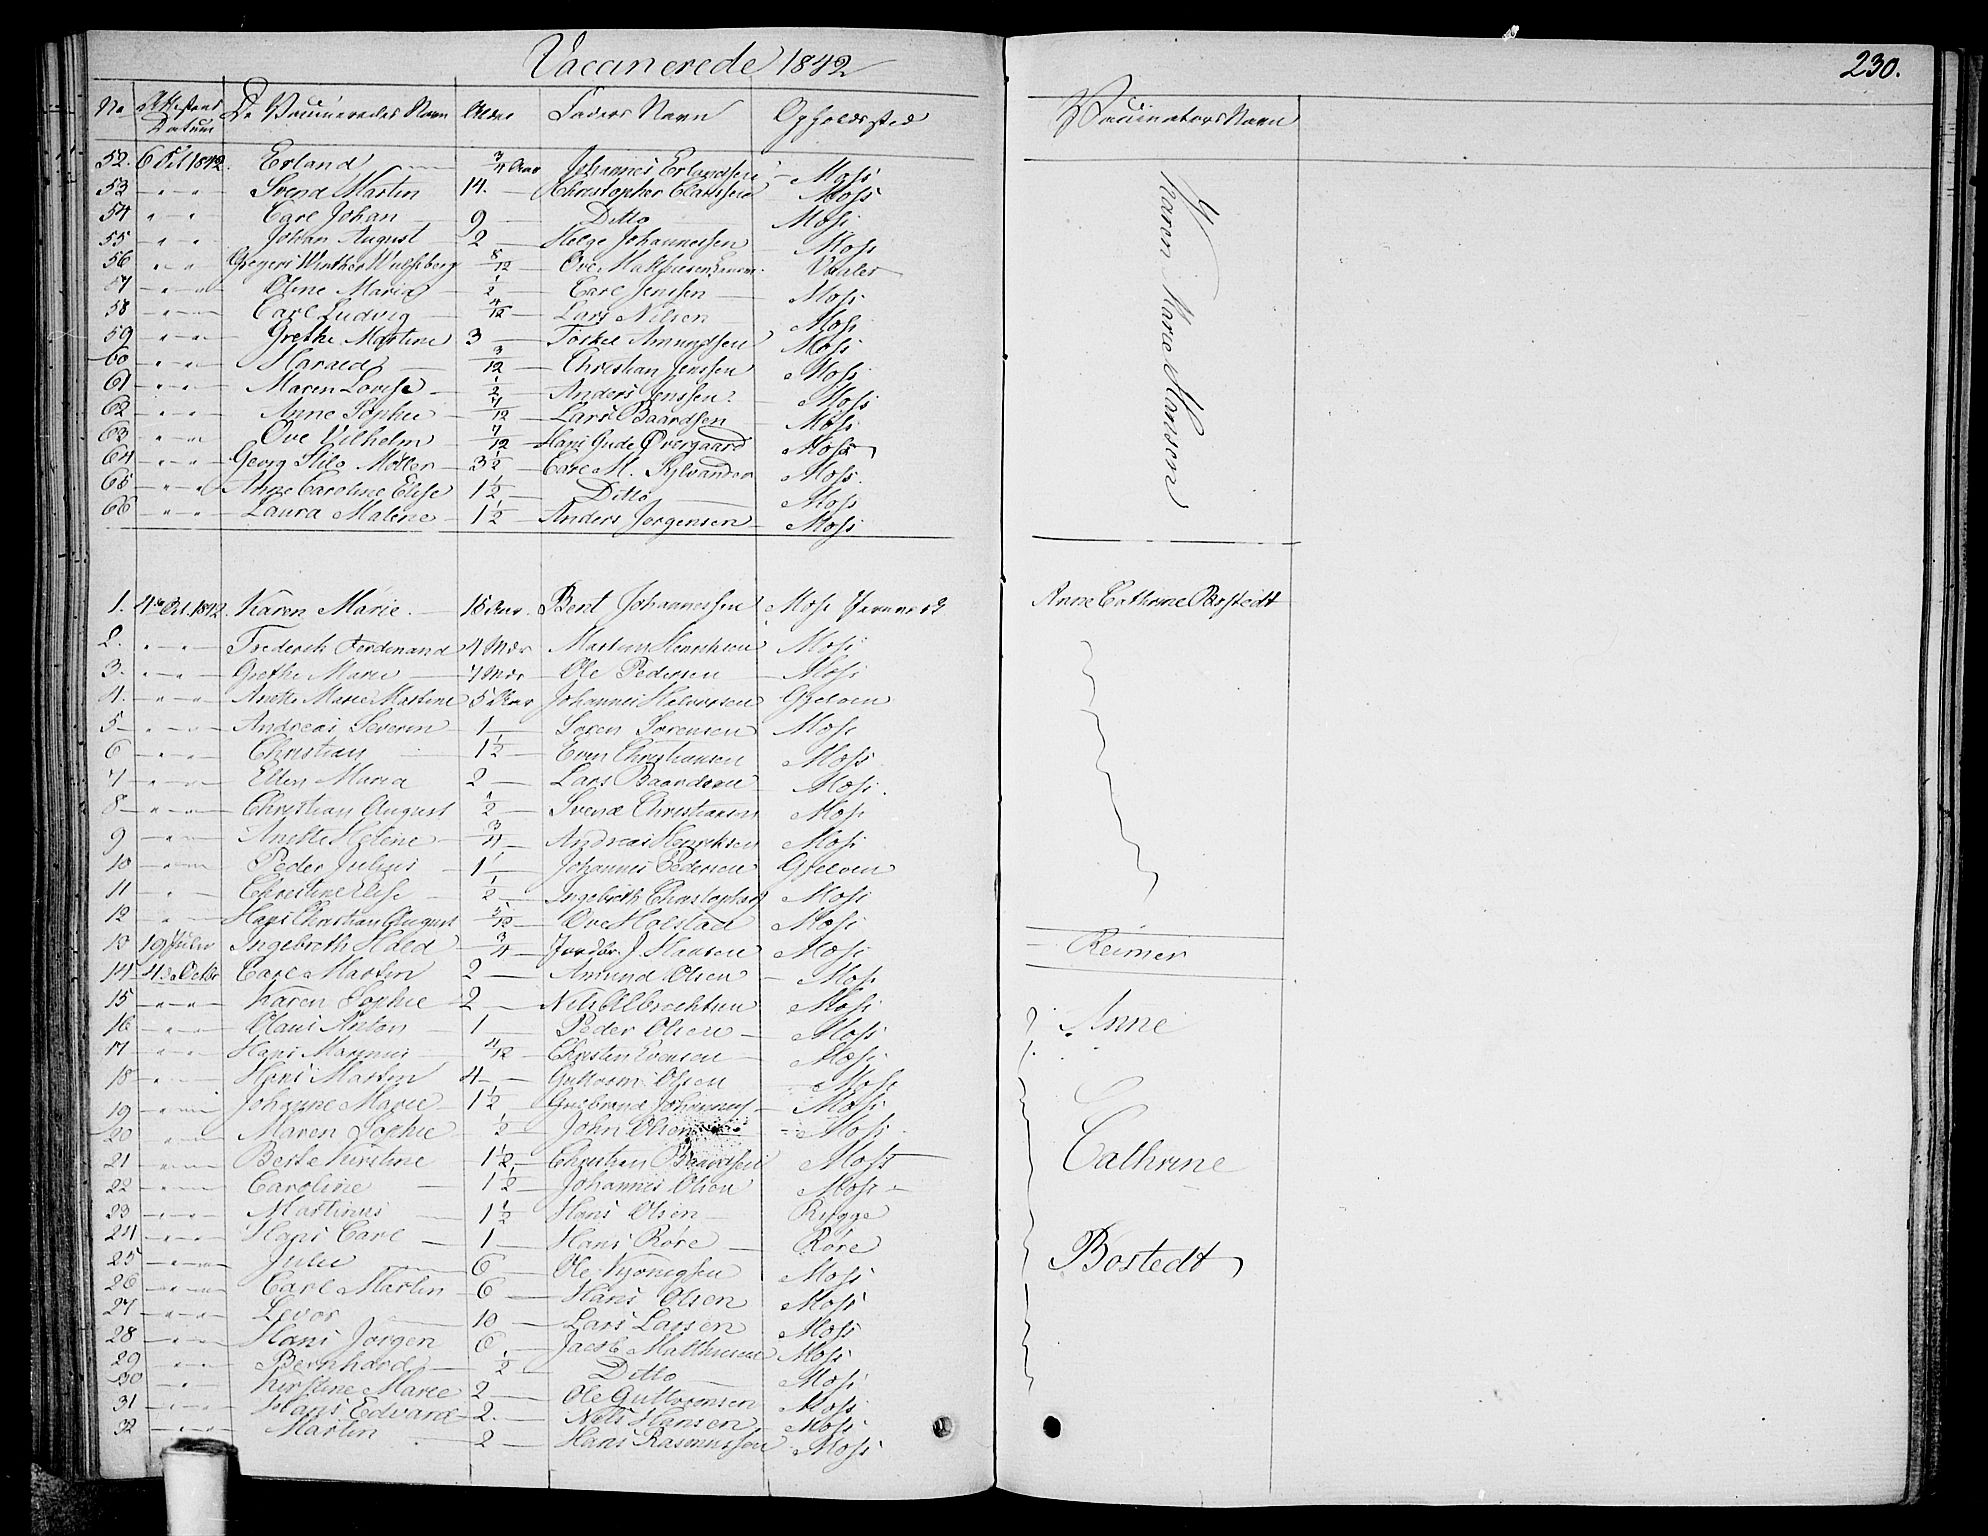 Vaccinerede 1842
230.
No Attestens Datum De Vaccineredes Navn Alder Faders Navn Opholdssted Vaccinators Navn
52. 1842. Erland 3/4 Aar Johannes Erlandsen Moss
53 " " Svend Martin 14. Christopher Claussen Moss
54 " " Carl Johan 9 Ditto Moss
55 " " Johan August 2 Helge Johannessen Moss
56 " " Gregers Winther Wulfsberg 8/12 Ove Vaaler
57 " " Oline Maria 1/2 Carl Jenssen Moss
58 " " Carl Ludvig 4/12 Lars Nilsen Moss
59 " " Grethe Martine 3 Torkel Amundsen Moss
60 " " Harald 3/12 Christian Jenssen Moss
61 " " Maren Lovise 1/2 Anders Jenssen Moss
62 " " Anne Sophie 7/12 Lars Baardsen Moss
63 " " Ove Vilhelm 7/12 Hans Gude Overgaard Moss
64 " " Georg Thilo Møller 3 1/2 Carl M. Sylvander Moss.
65 " " Anne Caroline Elise 1 1/2 Ditto Moss
66 " " Laura Malene 1 1/2 Anders Jørgensen Moss
Karen Marie Hansen
1. 4de Oct. 1842. Karen Marie. 15 Aar. Bent Johannessen Moss Anne Cathrine Bostedt
2. " " Frederik Ferdinand 4 Mdr Martin Henriksen Moss
3. " " Grethe Marie 7 Mdr Ole Pedersen Moss
4. " " Anette Marie Martine 5 Aar Johannes Halvorsen
5 " " Andreas Severin 1 Søren Sørensen Moss
6 " " Christian 1 1/2 Even Christiansen Moss
7 " " Ellen Maria 2 Lars Baardsen Moss.
8 " " Christian August 1/2 Svend Christiansen Moss
9 " " Anette Helene 3/4 Andreas Henriksen Moss
10 " " Peder Julius 1 Johannes Pedersen
11 " Christine Elise 1/2 Ingebreth Christophers Moss
12 " Hans Christian August 5/12 Ove Holstad Moss
13 19 Julie Ingebreth Hald 3/4 J. Hansen Moss Reimer
14 4de Octbr Carl Martin 2 Amund Olsen Moss
15 " " Karen Sophie 2 Nils Albrechtsen Moss
16 " " Olaus Anton 1 Peder Olsen Moss Anne
17 " " Hans Magnus 4/12 Christen Evensen Moss
18 " Hans Martin 4 Guttorm Olsen Moss
19 " Johanne Marie 1 1/2 Gulbrand Johannes Moss
20 " Maren Sophie 1/2 John Olsen Moss
21 " Berte Kirstine 1 1/2 Christian Baardsen Moss Cathrine
22 " " Caroline 1 1/2 Johannes Olsen Moss
23 " " Martinus 1 1/2 Hans Olsen Rygge
24 " " Hans Carl 1 Hans Røre Røre
25 " " Julie 6 Ole Moss Bostedt
26 " " Carl Martin 6 Hans Olsen Moss
27 " " Levor 10 Lars Larsen Moss
28 " " Hans Jørgen 6 Jacob Matthiesen Moss
29 " " Bernhard 1/2 Ditto Moss
30 " Kirstine Marie 2 Ole Guttormsen Moss
31 " " Hans Edvard 2. Nils Hansen Moss
32 " " Martin 2 Hans Rasmussen Moss